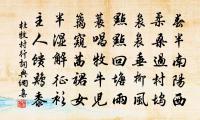 春半南陽西
柔桑過村塢
裊裊垂柳風
點點回塘雨
蓑唱牧牛兒
籬窺蒨裙女
半濕解征衫
主人饋雞黍
杜牧村行詞典網集